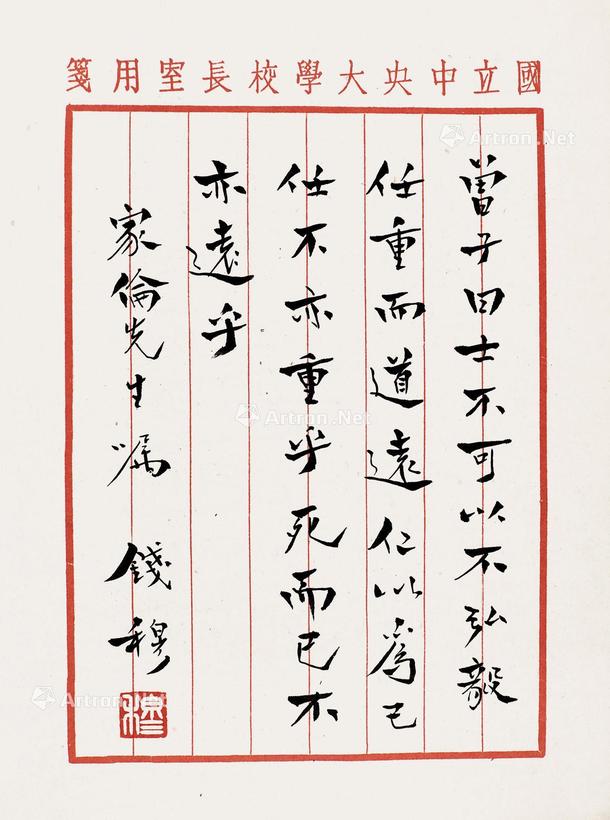 國立中央大學校長室用箋
曾子曰士不可以不弘毅
任重而道遠仁以為己
任不亦重乎死而已不
亦遠乎
家倫先生嘱 錢穆
穆
Artron.Net
Artron.Net
Artron.Net